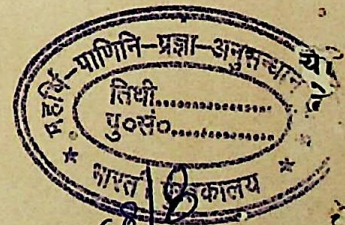 महर्षि-पाणिनि-प्रज्ञा-अनुसन्धान
तिथी...................
पु०सं०...................
भारती पुस्तकालय